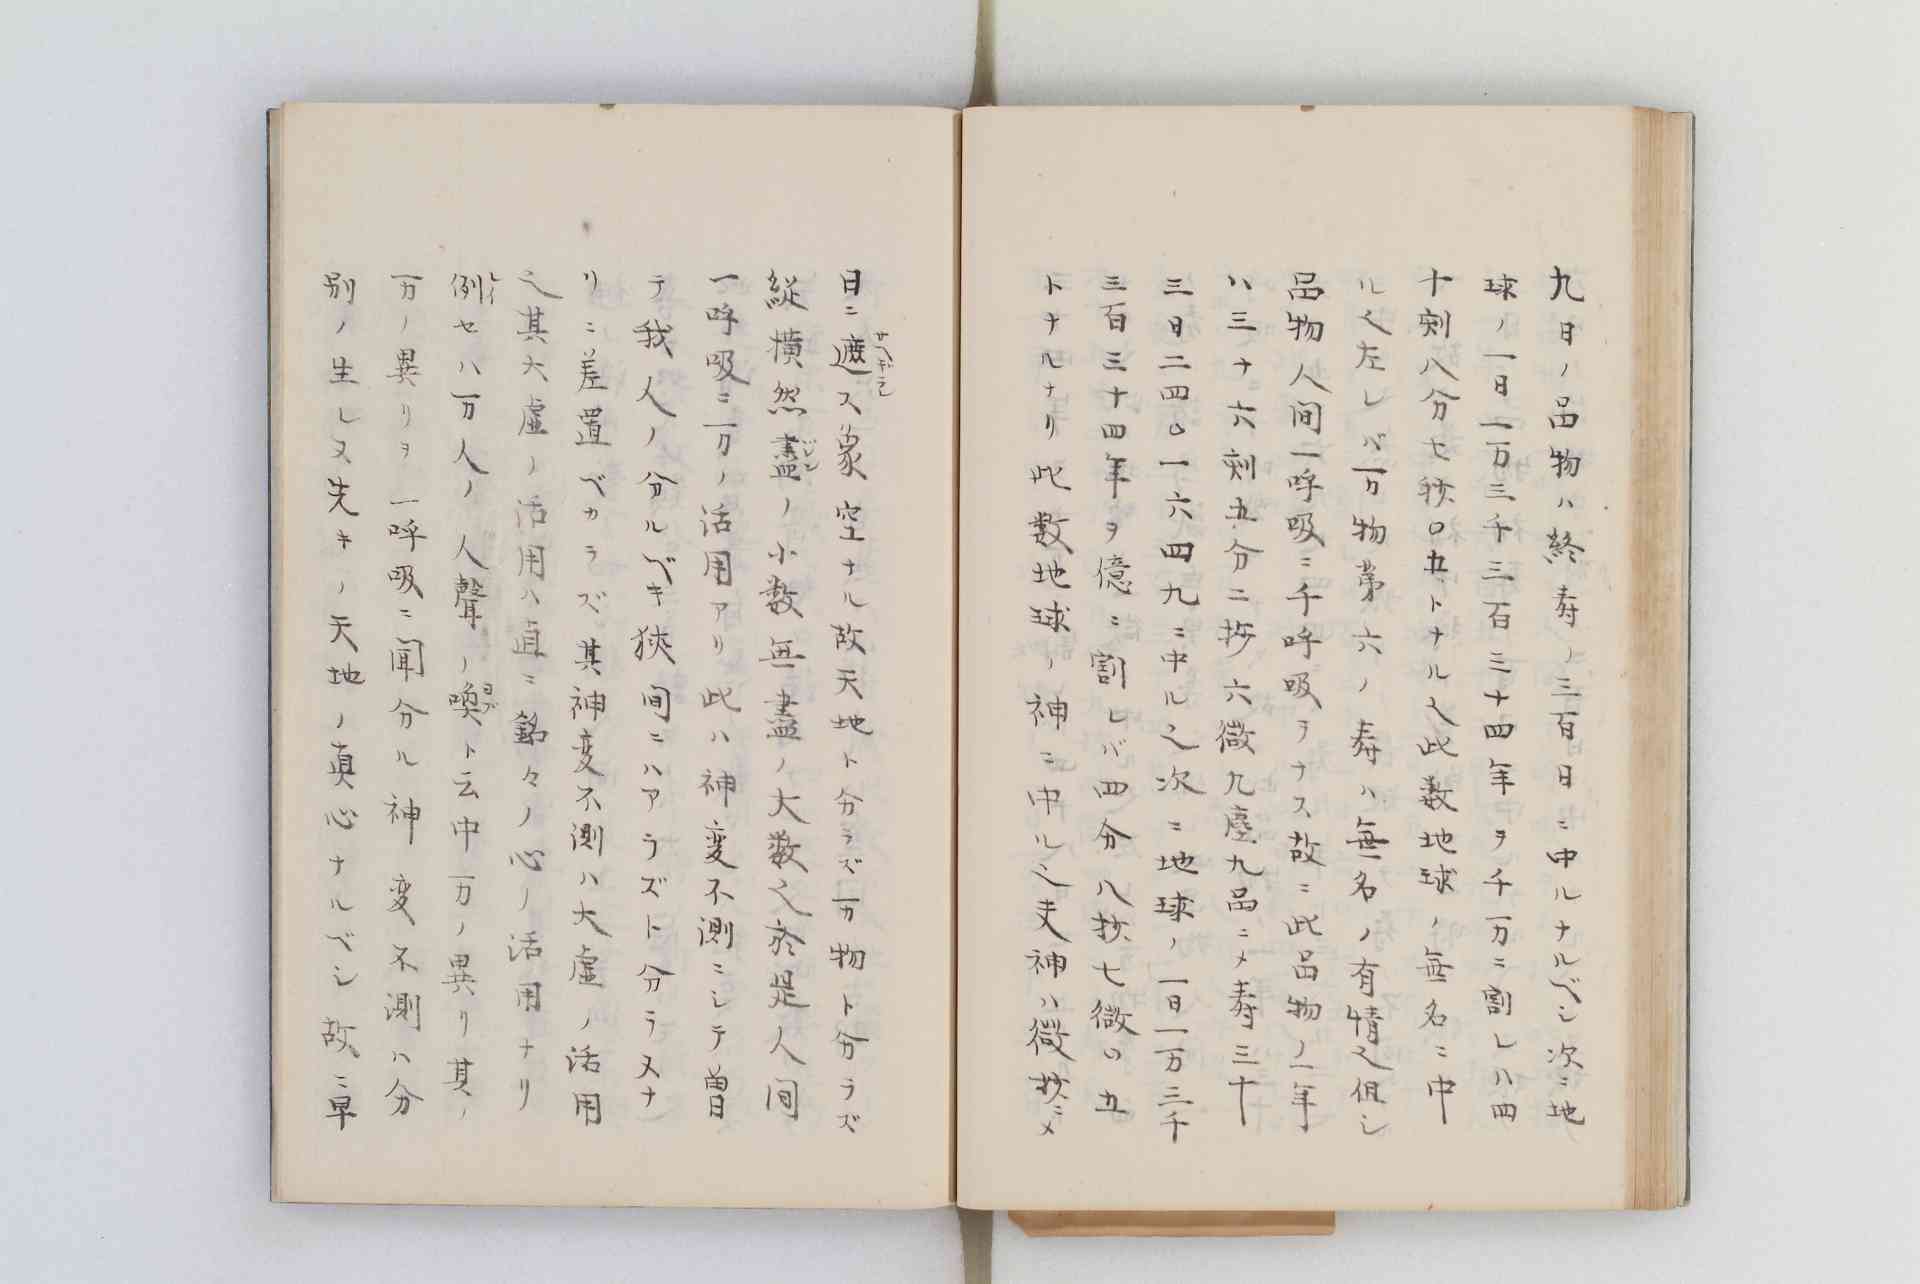 九日ノ品物ハ終寿ノ三百日ニ中ルナルベシ次ニ地
球ノ一日一万三千三百三十四年ヲ千万ニ割レハ四
十刻八分七秒〇五トナル之此数地球ノ無名ニ中
ル之左レバ万物第六ノ寿ハ無名ノ有情之但シ
品物人間一呼吸ニ千呼吸ヲナス故ニ此品物ノ一年
ハ三十六刻五分二抄六微九塵九品ニメ寿三十
三日二四〇一六四九ニ中ル之次ニ地球ノ一日一万三千
三百三十四年ヲ億ニ割レバ四分八抄七微〇五
トナルナリ此数地球ノ神ニ中ル之夫神ハ微抄ニメ
日ニ遮ス象空ナル故天地ト分ラズ万物ト分ラズ
サヘギラレ
縦横然盡ノ小数無盡ノ大数之於是人間
ジン
一呼吸ニ一万ノ活用アリ此ハ神変不測ニシテ曽
テ我人ノ分ルベキ狹間ニハアラズト分ラヌナ
リニ差置ベカラズ其神変不測ハ大虚ノ活用
之其大虚ノ活用ハ直ニ銘々ノ心ノ活用ナリ
例セハ万人ノ人聲ノ喚ト云中万ノ異リ其ノ
レイ
ヨブ
万ノ異リヲ一呼吸ニ聞分ル神変不測ハ分
別ノ生レヌ先キノ天地ノ真心ナルベシ故ニ早